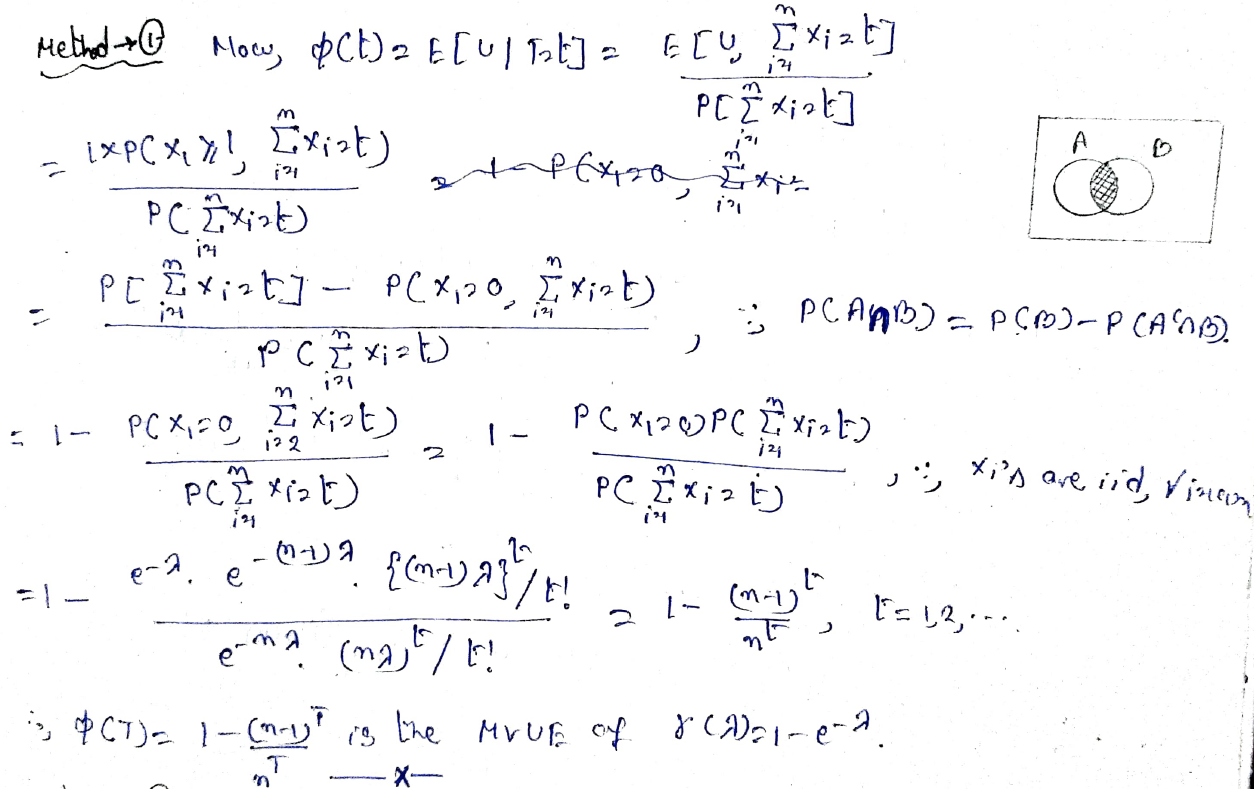 Method → ① Now, φ(t) = E[U | T=t] = E[U, ∑_{i=1}^{n} x_i = t] / P[∑_{i=1}^{n} x_i = t]
= 1×P(X_1 ≥ 1, ∑_{i=1}^{n} x_i = t) / P(∑_{i=1}^{n} x_i = t) ~~= 1 - P(X_1 = 0, ∑_{i=1}^{n} x_i =~~
A B
= P[∑_{i=1}^{n} x_i = t] - P(X_1 = 0, ∑_{i=1}^{n} x_i = t) / P(∑_{i=1}^{n} x_i = t), ∵ P(A∩B) = P(B) - P(A^c∩B).
= 1 - P(X_1 = 0, ∑_{i=2}^{n} x_i = t) / P(∑_{i=1}^{n} x_i = t) = 1 - P(X_1 = 0) P(∑_{i=1}^{n} x_i = t) / P(∑_{i=1}^{n} x_i = t), ∵ x_i's are iid, ∀ i=1(1)n
= 1 - e^{-λ} . e^{-(n-1)λ} . {(n-1)λ}^t / t! / e^{-nλ} . (nλ)^t / t! = 1 - (n-1)^t / n^t, t = 1,2,....
∴ φ(T) = 1 - (n-1)^T / n^T is the MVUE of γ(λ) = 1 - e^{-λ}.
—x—